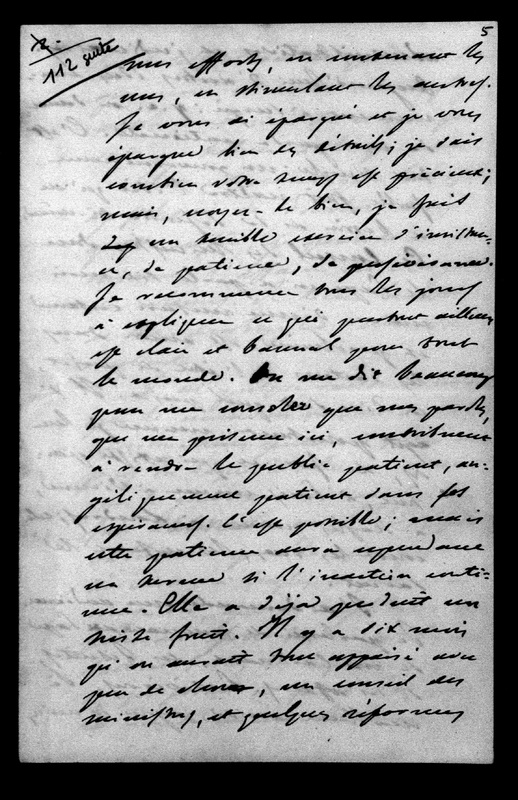 5
112 suite
nos efforts, en contenant les
uns, en stimulant les autres.
Je vous ai épargné et je vous
épargne bien des détails; je sais
combien votre temps est précieux;
mais, croyez-le bien, je fais
un terrible exercice d'insistan-
ce, de patience, de persévérance.
Je recommence tous les jours
à expliquer ce qui partout ailleurs
est clair et banal pour tout
le monde. On me dit beaucoup
pour me consoler que mes paroles,
que ma présence ici, contribuent
à rendre le public patient, an-
géliquement patient dans ses
espérances. C'est possible; mais
cette patience aura cependant
un terme si l'inaction conti-
nue. Elle a déjà produit un
triste fruit. Il y a dix mois
qu'on aurait tout apaisé avec
peu de chose, un conseil des
ministres, et quelques réformes